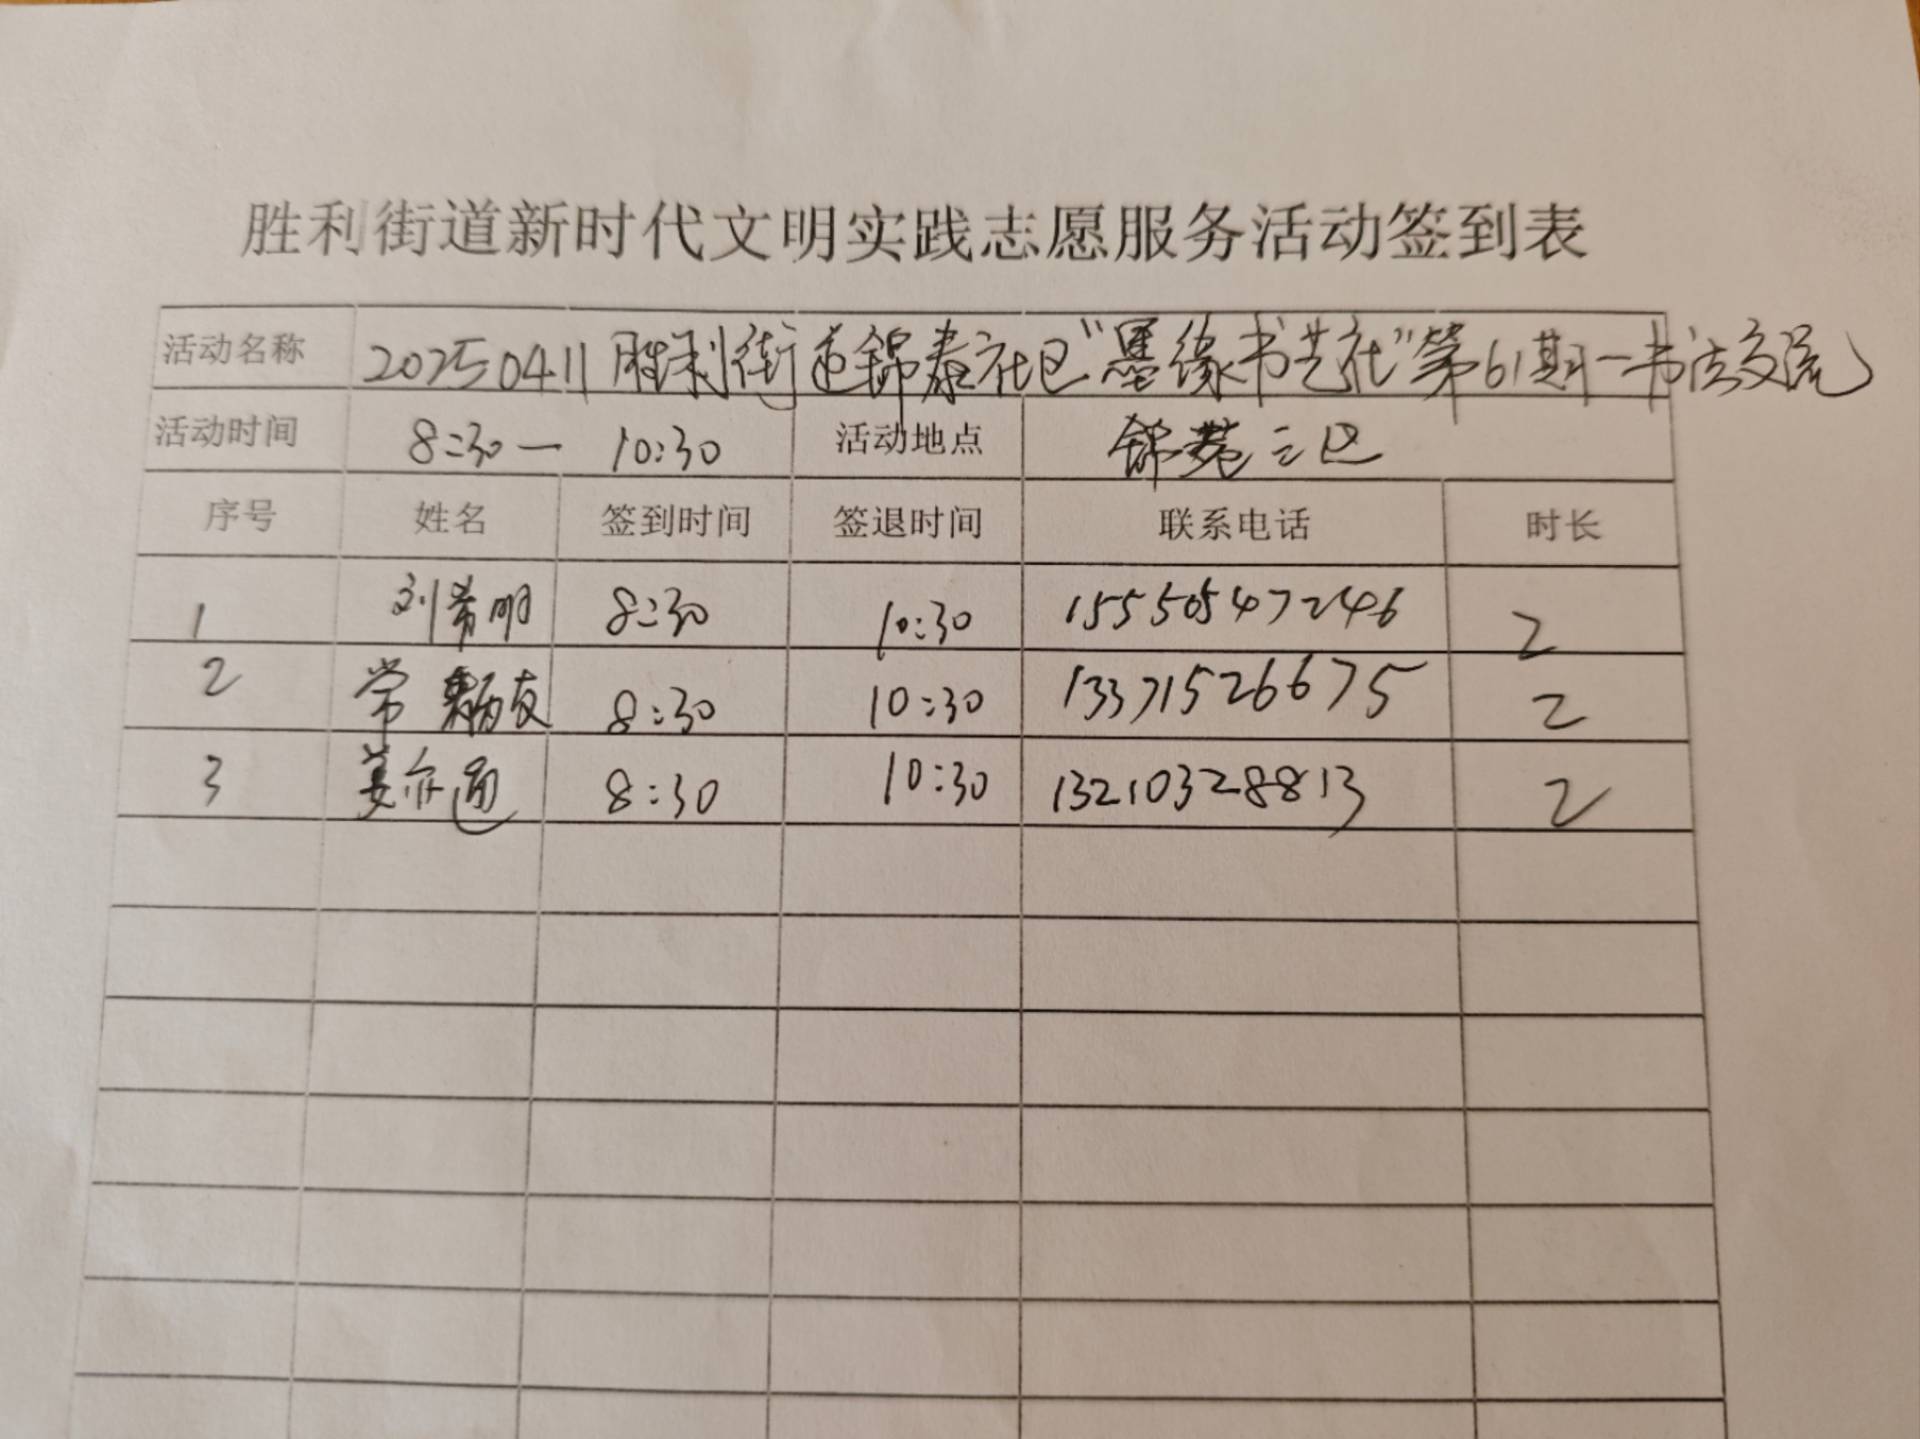 胜利街道新时代文明实践志愿服务活动签到表
活动名称 20250411胜利街道锦泰社区“墨缘书艺社”第61期—书法交流
活动时间 8:30— 10:30 活动地点 锦苑三区
序号 姓名 签到时间 签退时间 联系电话 时长
1 刘希明 8:30 10:30 15550547246 2
2 常 友 8:30 10:30 13371526675 2
3 姜亦通 8:30 10:30 13210328813 2